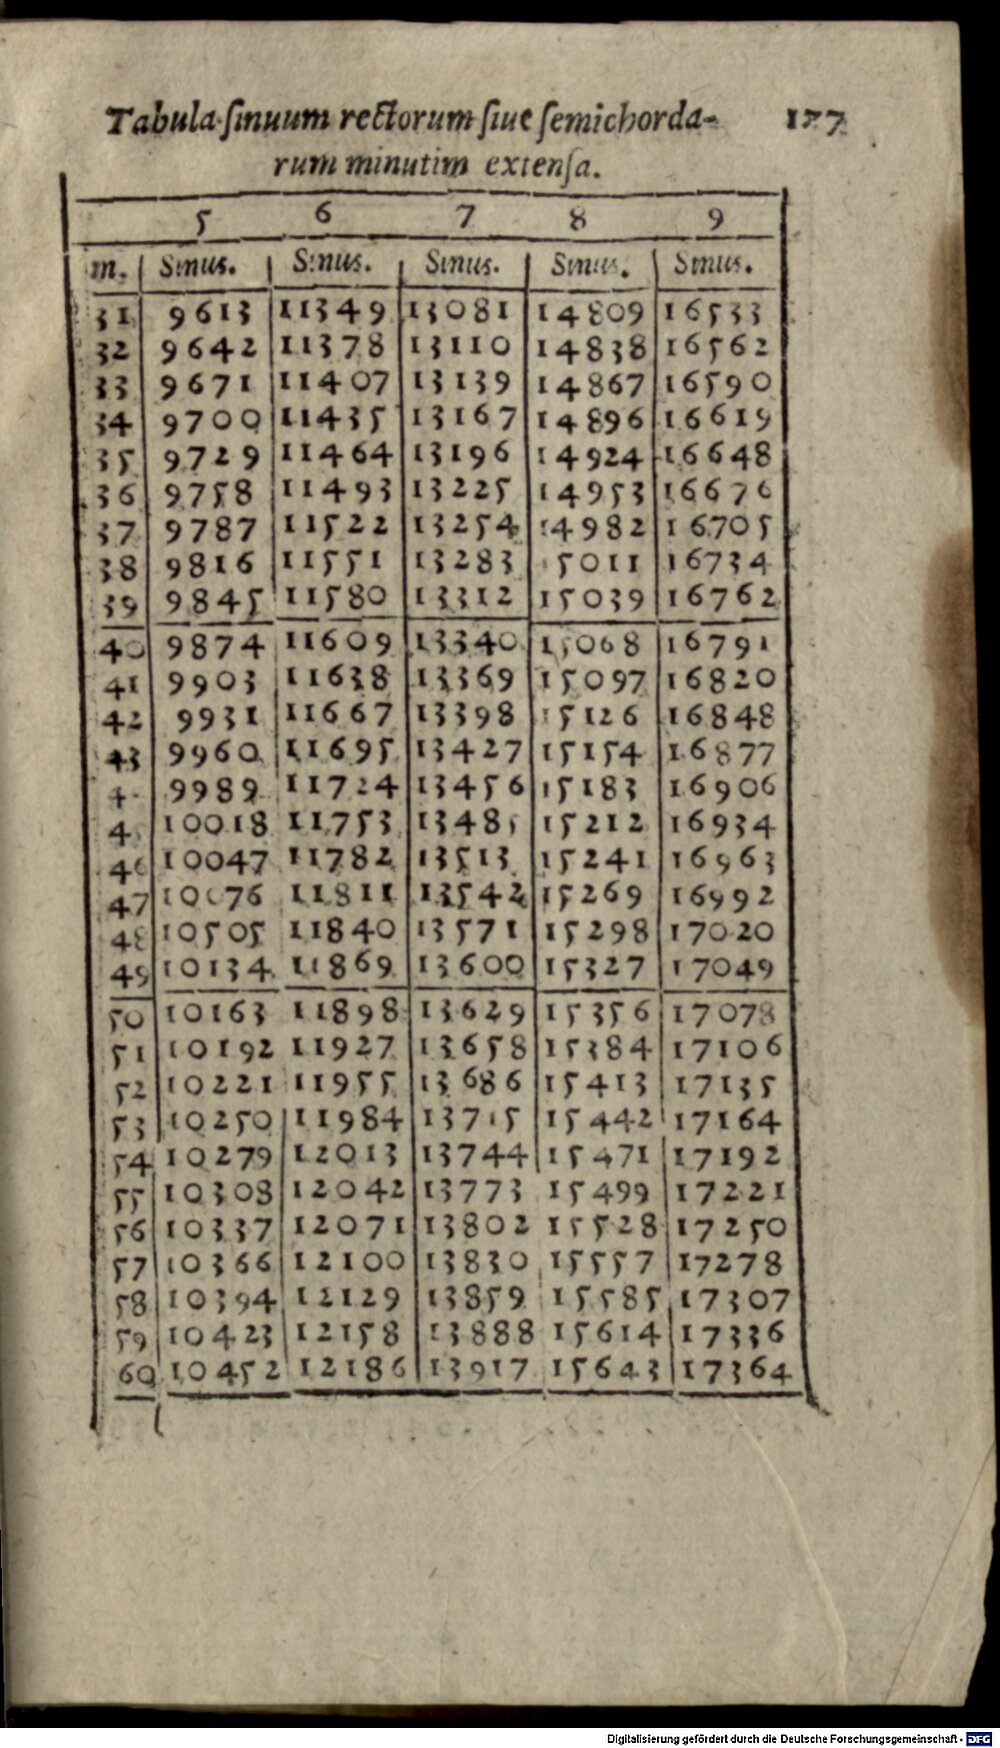 Tabula sinuum rectorum siue semichorda- 177
rum minutim extensa.
5 6 7 8 9
m. Sinus. Sinus. Sinus. Sinus. Sinus.
31 9613 11349 13081 14809 16533
32 9642 11378 13110 14838 16562
33 9671 11407 13139 14867 16590
34 9700 11435 13167 14896 16619
35 9729 11464 13196 14924 16648
36 9758 11493 13225 14953 16676
37 9787 11522 13254 14982 16705
38 9816 11551 13283 15011 16734
39 9845 11580 13312 15039 16762
40 9874 11609 13340 15068 16791
41 9903 11638 13369 15097 16820
42 9931 11667 13398 15126 16848
43 9960 11695 13427 15154 16877
4 9989 11724 13456 15183 16906
4 10018 11753 13485 15212 16934
46 10047 11782 13513 15241 16963
47 10076 11811 13542 15269 16992
48 10505 11840 13571 15298 17020
49 10134 11869 13600 15327 17049
50 10163 11898 13629 15356 17078
51 10192 11927 13658 15384 17106
52 10221 11955 13686 15413 17135
53 10250 11984 13715 15442 17164
54 10279 12013 13744 15471 17192
55 10308 12042 13773 15499 17221
56 10337 12071 13802 15528 17250
57 10366 12100 13830 15557 17278
58 10394 12129 13859 15585 17307
59 10423 12158 13888 15614 17336
60 10452 12186 13917 15643 17364
Digitalisierung gefördert durch die Deutsche Forschungsgemeinschaft - DFG